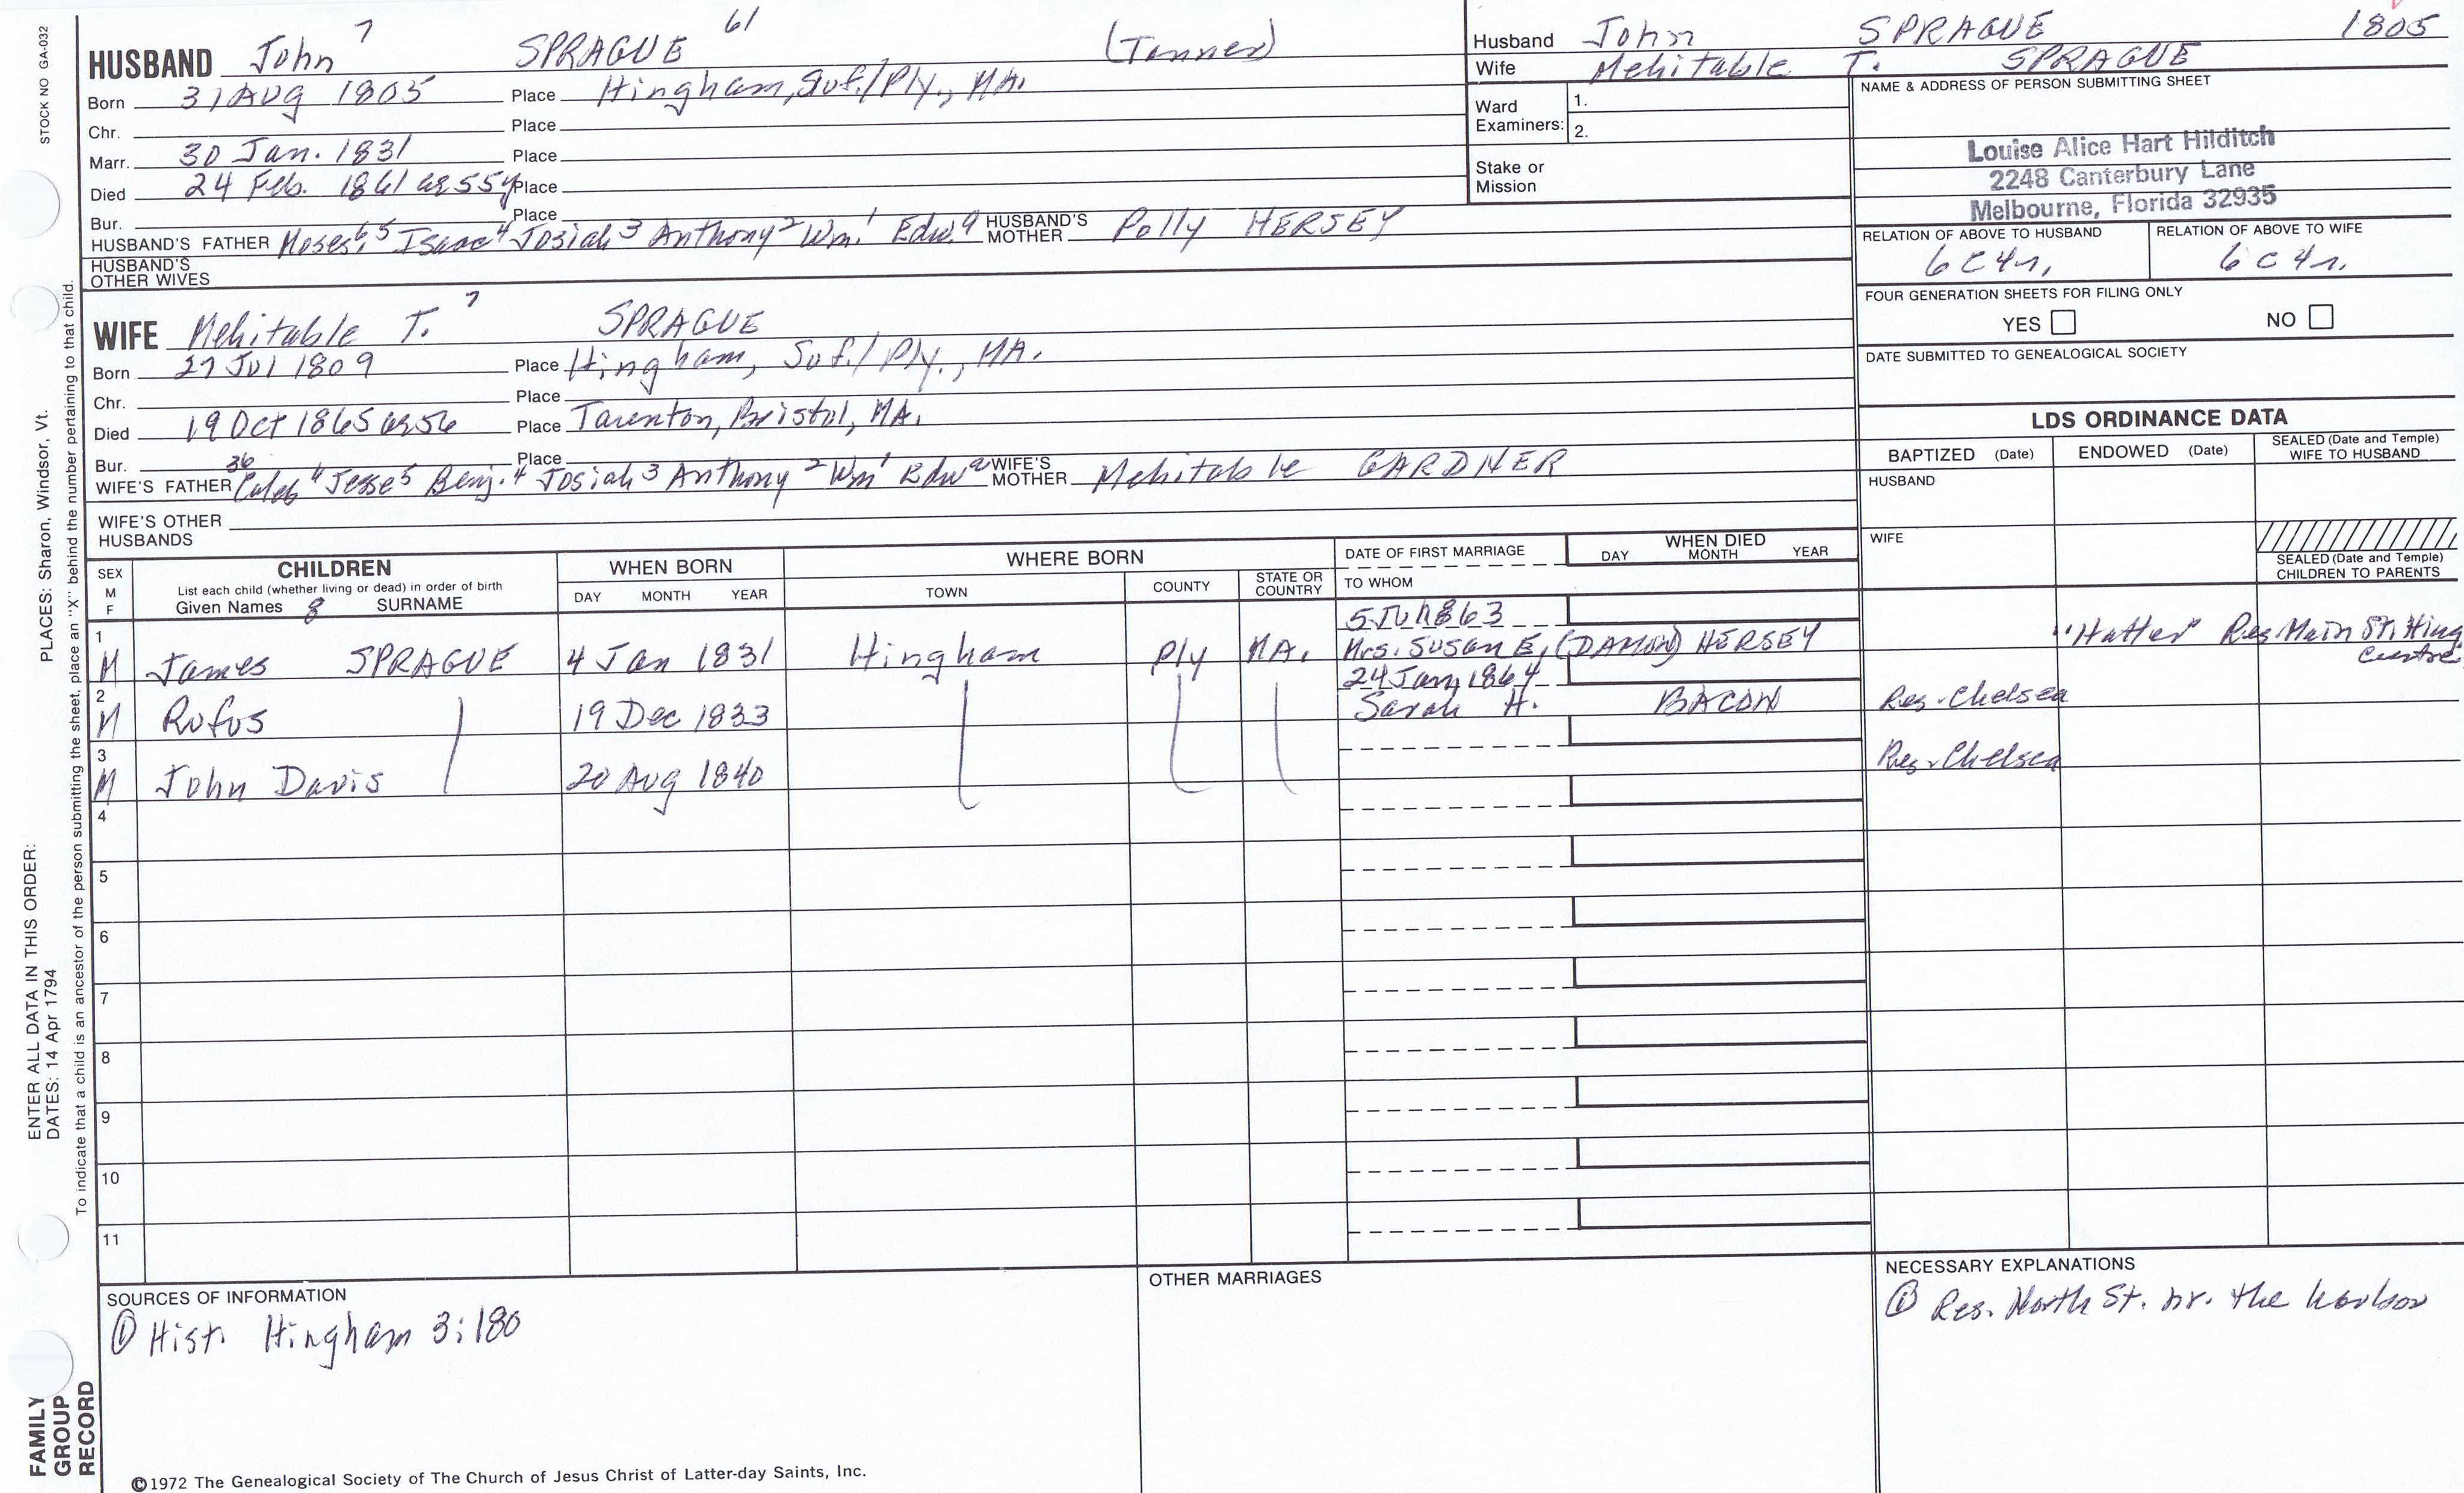 STOCK NO GA-032
HUSBAND John 7 SPRAGUE 61 (Tanner)
Born 31 Aug 1805 Place Hingham, Suf./Ply., MA.
Chr. Place
Marr. 30 Jan. 1831 Place
Died 24 Feb. 1861 ae 55y Place
Bur. Place
HUSBAND'S FATHER Moses 6, 5 Isaac 4 Josiah 3 Anthony 2 Wm. 1 Edw. a HUSBAND'S MOTHER Polly HERSEY
HUSBAND'S OTHER WIVES
Husband John SPRAGUE 1805
Wife Mehitable T. SPRAGUE
Ward Examiners: 1.
2.
Stake or Mission
NAME & ADDRESS OF PERSON SUBMITTING SHEET
Louise Alice Hart Hilditch
2248 Canterbury Lane
Melbourne, Florida 32935
RELATION OF ABOVE TO HUSBAND RELATION OF ABOVE TO WIFE
6 C 4 r. 6 C 4 r.
FOUR GENERATION SHEETS FOR FILING ONLY
YES NO
DATE SUBMITTED TO GENEALOGICAL SOCIETY
WIFE Mehitable T. 7 SPRAGUE
Born 27 Jul 1809 Place Hingham, Suf./Ply., MA.
Chr. Place
Died 19 Oct 1865 ae 56 Place Taunton, Bristol, MA.
Bur. Place
36
WIFE'S FATHER Caleb 6 Jesse 5 Benj. 4 Josiah 3 Anthony 2 Wm 1 Edw a WIFE'S MOTHER Mehitable GARDNER
WIFE'S OTHER HUSBANDS
LDS ORDINANCE DATA
BAPTIZED (Date) ENDOWED (Date) SEALED (Date and Temple) WIFE TO HUSBAND
HUSBAND
WIFE
SEALED (Date and Temple) CHILDREN TO PARENTS
SEX M F CHILDREN WHEN BORN WHERE BORN DATE OF FIRST MARRIAGE WHEN DIED
List each child (whether living or dead) in order of birth
Given Names 8 SURNAME DAY MONTH YEAR TOWN COUNTY STATE OR COUNTRY TO WHOM DAY MONTH YEAR
5 Jul 1863
1 M James SPRAGUE 4 Jan 1831 Hingham Ply MA. Mrs. SUSAN E, (DAMON) HERSEY "Hatter" Res Main St. Hing Centre
24 Jan 1864
2 M Rufus 19 Dec 1833 Sarah H. BACON Res. Chelsea
3 M John Davis 20 Aug 1840 Res. Chelsea
4
5
6
7
8
9
10
11
SOURCES OF INFORMATION
① Hist. Hingham 3:180
OTHER MARRIAGES
NECESSARY EXPLANATIONS
① Res. North St. nr. the harbor
©1972 The Genealogical Society of The Church of Jesus Christ of Latter-day Saints, Inc.
FAMILY GROUP RECORD
ENTER ALL DATA IN THIS ORDER:
DATES: 14 Apr 1794
PLACES: Sharon, Windsor, Vt.
To indicate that a child is an ancestor of the person submitting the sheet, place an "X" behind the number pertaining to that child.